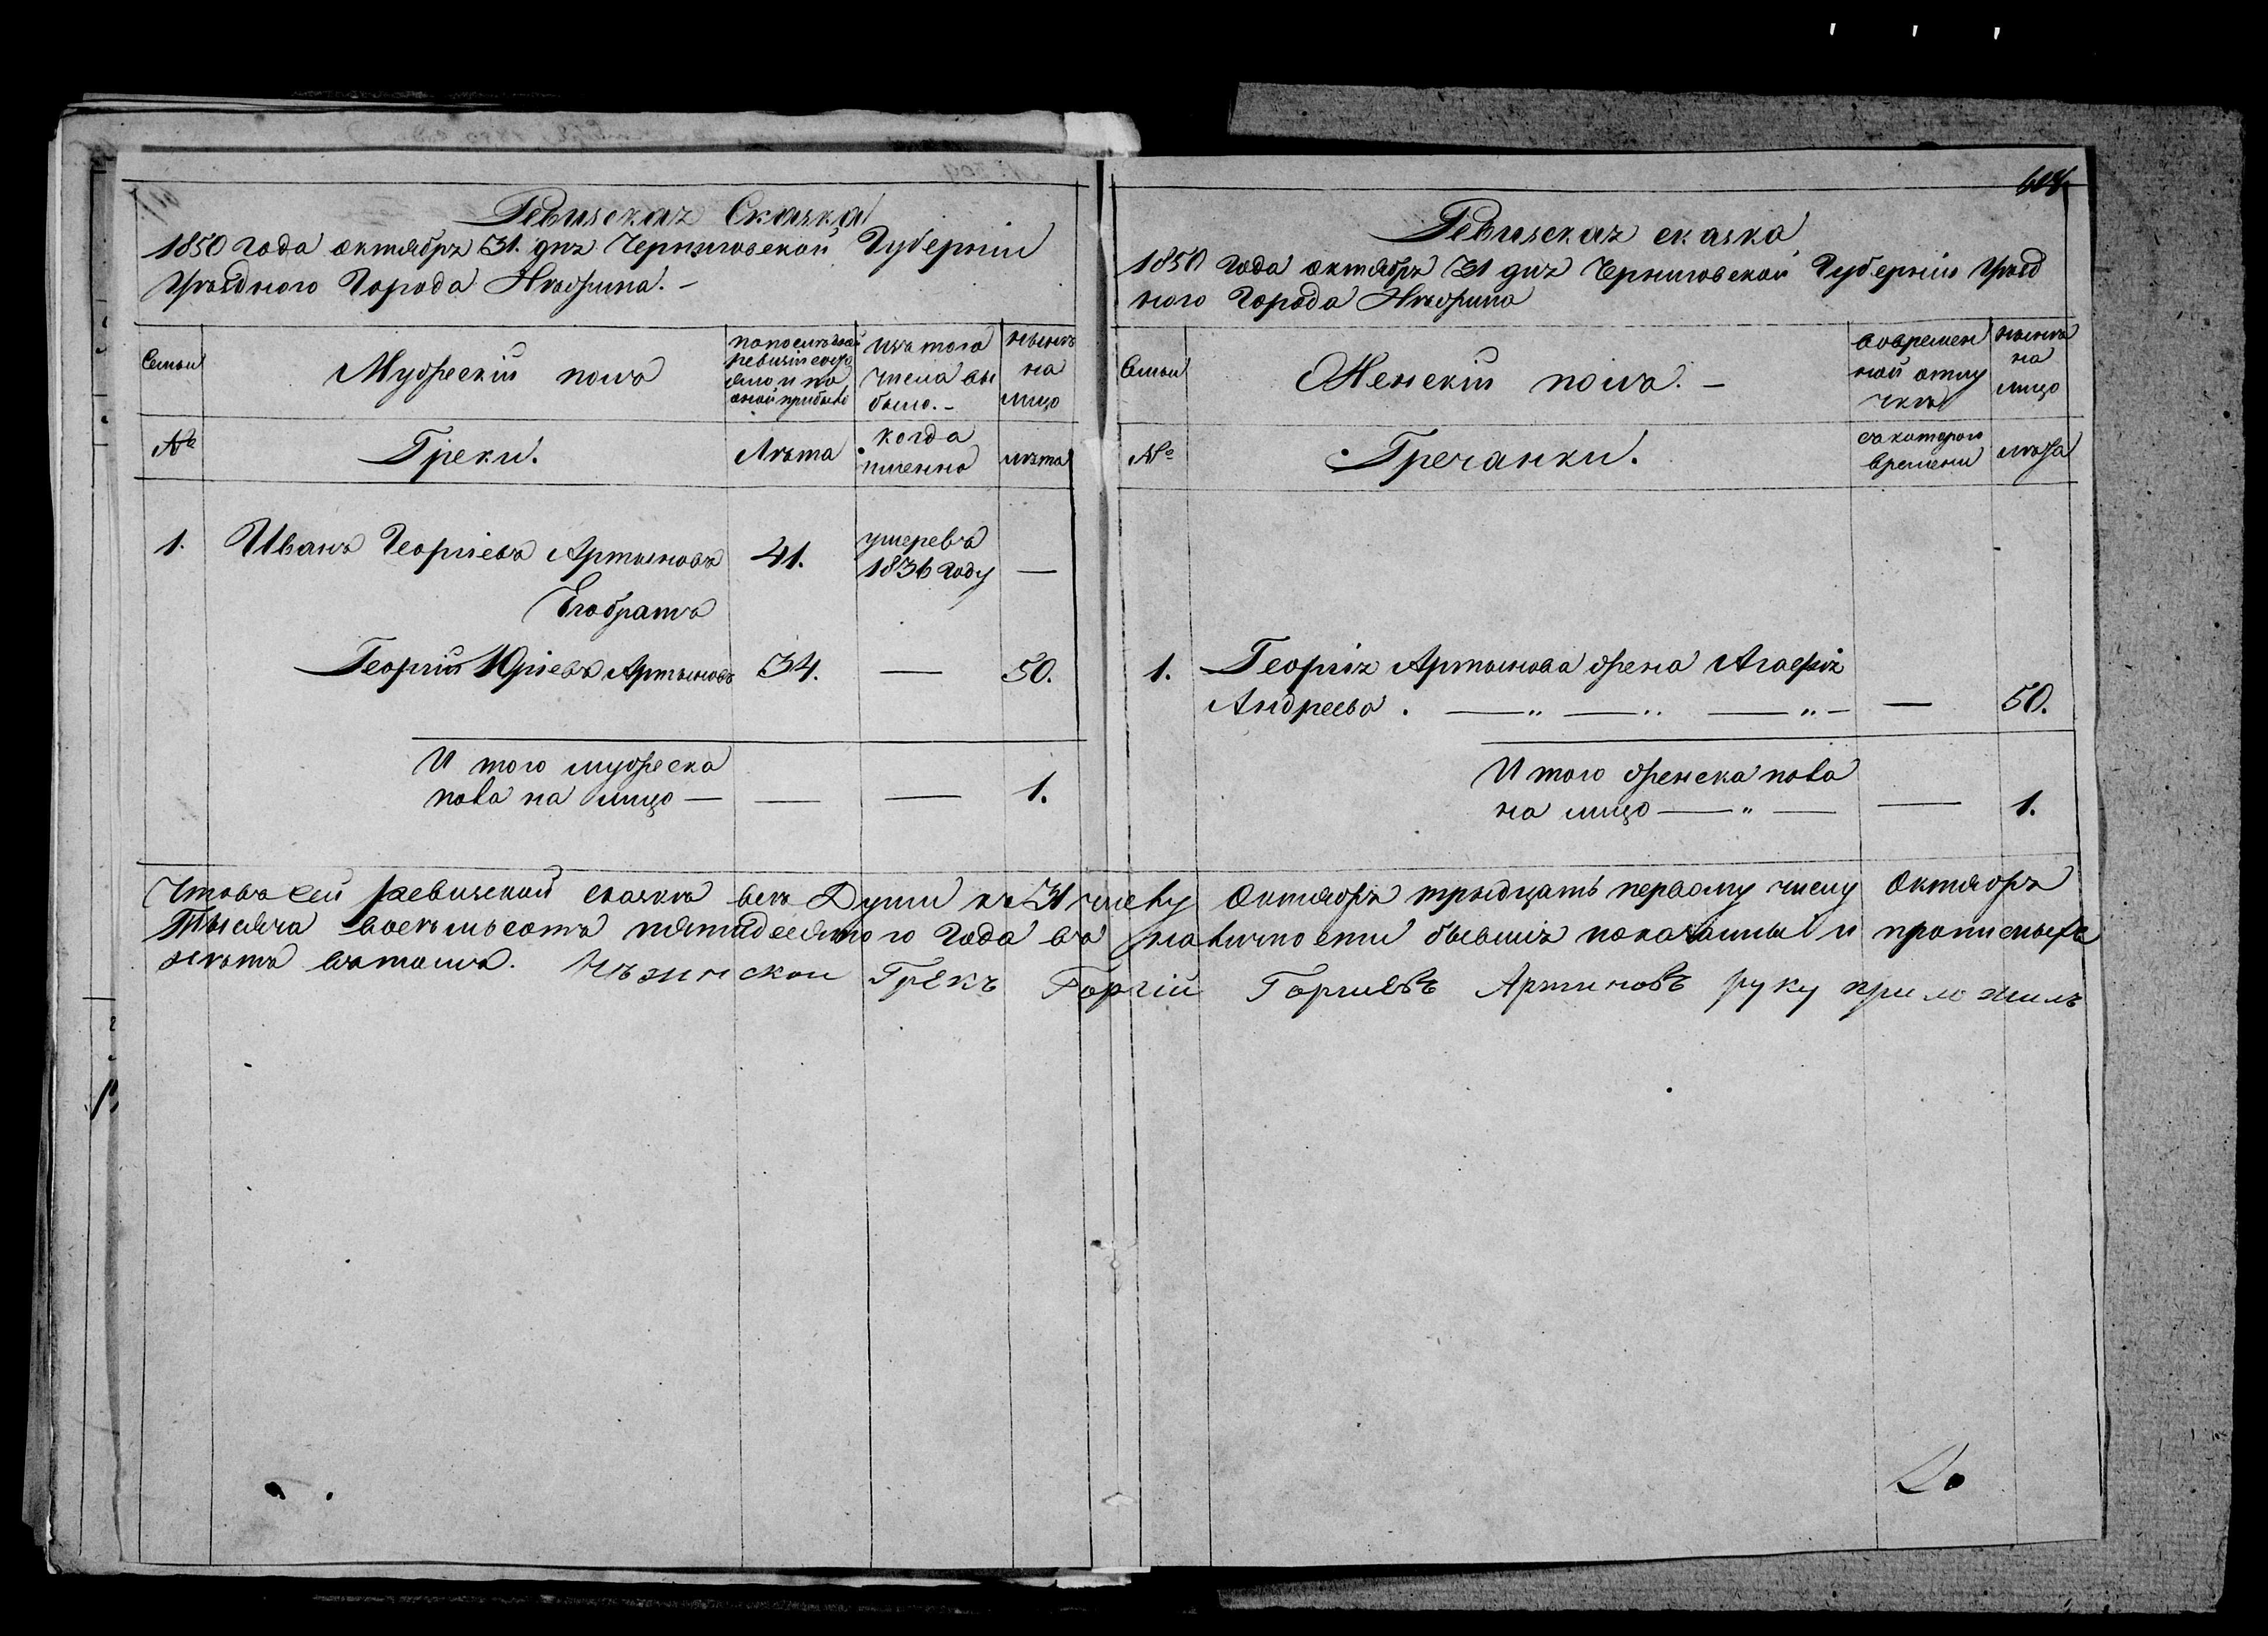 Ревизская Сказка
1850 года октября 31. дня Черниговской Губерніи
Уѣзднаго Города Нѣжина. -
Семьи
Мужескій полъ
по послѣдней
ревизіи состо
яло и по
оной прибыло
изъ того
числа вы
было. -
нынѣ
на
лицо
№
Греки.
Лѣта
когда
именно
лѣта
1. Иванъ Георгіевъ Артыновъ 41. умеръ въ
1836 году —
Его братъ
Георгій Юріевъ Артыновъ 34. — 50.
И того мужеска
пола на лицо — — — 1.
604
Ревизская сказка
1850 года октября 31 дня Черниговской Губерніи Уѣзд
ного Города Нѣжина
Семьи
Женскій полъ. -
во времен
ной отлу
чкѣ
нынѣ
на
лицо
№
Гречанки.
съ котораго
времени
лѣта
1. Георгія Артынова жена Агафія
Андреева . — „ — „ — „ - — 50.
И того женска пола
на лицо — „ — — 1.
Что въ сей ревизской сказкѣ всѣ Души къ 31 числу Октября трыдцать первому числу Октября
Тысяча восемьсотъ пятидесятого Года въ наличности бывшія показанны и прописныхъ
нѣтъ въ томъ. Нѣжинскои Грекъ Горгій Горгиевъ Артиновъ руку приложилъ